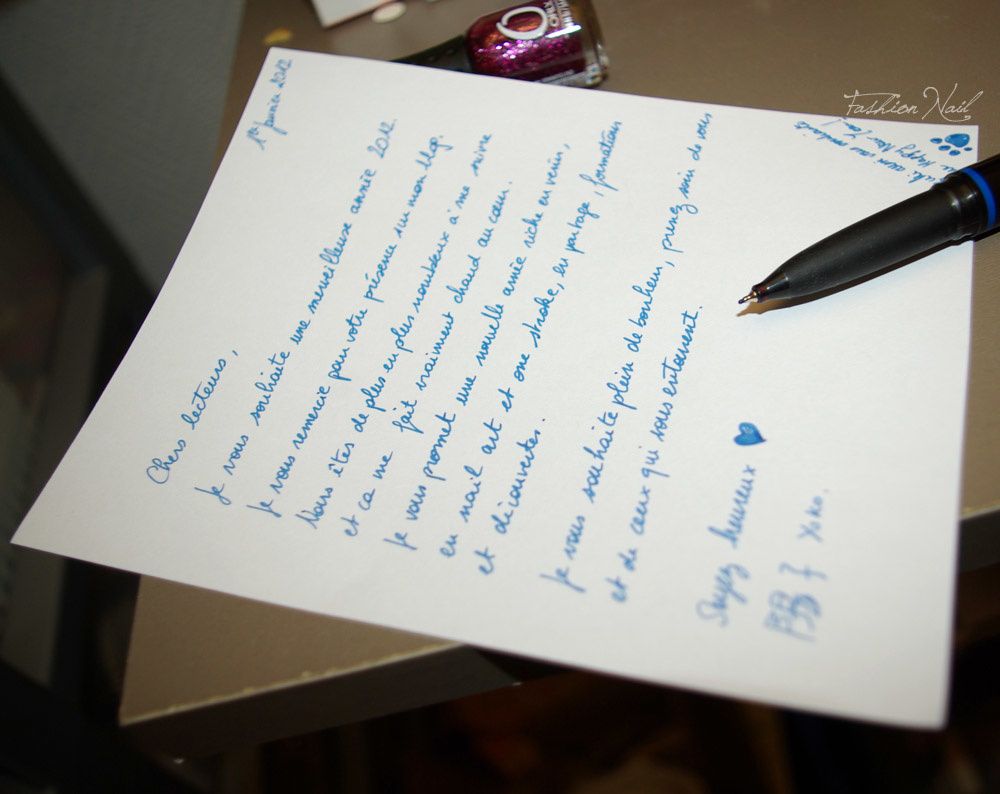 1er janvier 2012
Chers lecteurs,
Je vous souhaite une merveilleuse année 2012.
Je vous remercie pour votre présence sur mon blog.
Vous êtes de plus en plus nombreux à me suivre
et ca me fait vraiment chaud au cœur.
Je vous promet une nouvelle année riche en venir,
en nail art et one stroke, en partage, formations
et découvertes.
Je vous souhaite plein de bonheur, prenez soin de vous
et de ceux qui vous entourent.
Soyez heureux
Yoko.
aussi vous souhaite
Happy New Year!
Fashion Nail
O
ORLY